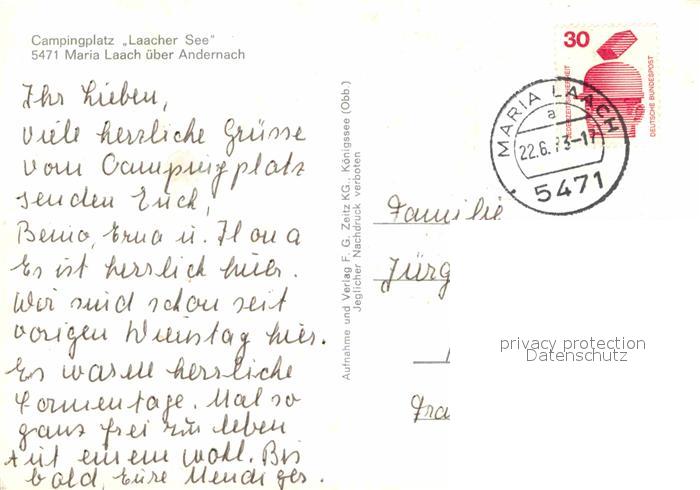 Campingplatz „Laacher See"
5471 Maria Laach über Andernach
Ihr Lieben,
viele herzliche Grüsse
vom Campingplatz
senden Euch,
Benno, Erna u. Ilona
Es ist herrlich hier.
Wir sind schon seit
vorigen Dienstag hier.
Es waren herrliche
Sonnentage. Mal so
ganz frei zu leben
tut einem wohl. Bis
bald, Eure
Aufnahme und Verlag F. G. Zeitz KG., Königssee (Obb.)
Jeglicher Nachdruck verboten
30
JEDERZEIT SICHERHEIT
DEUTSCHE BUNDESPOST
MARIA LAACH
a
22.6.73-17
5471
Familie
Jürg
Fra
privacy protection
Datenschutz